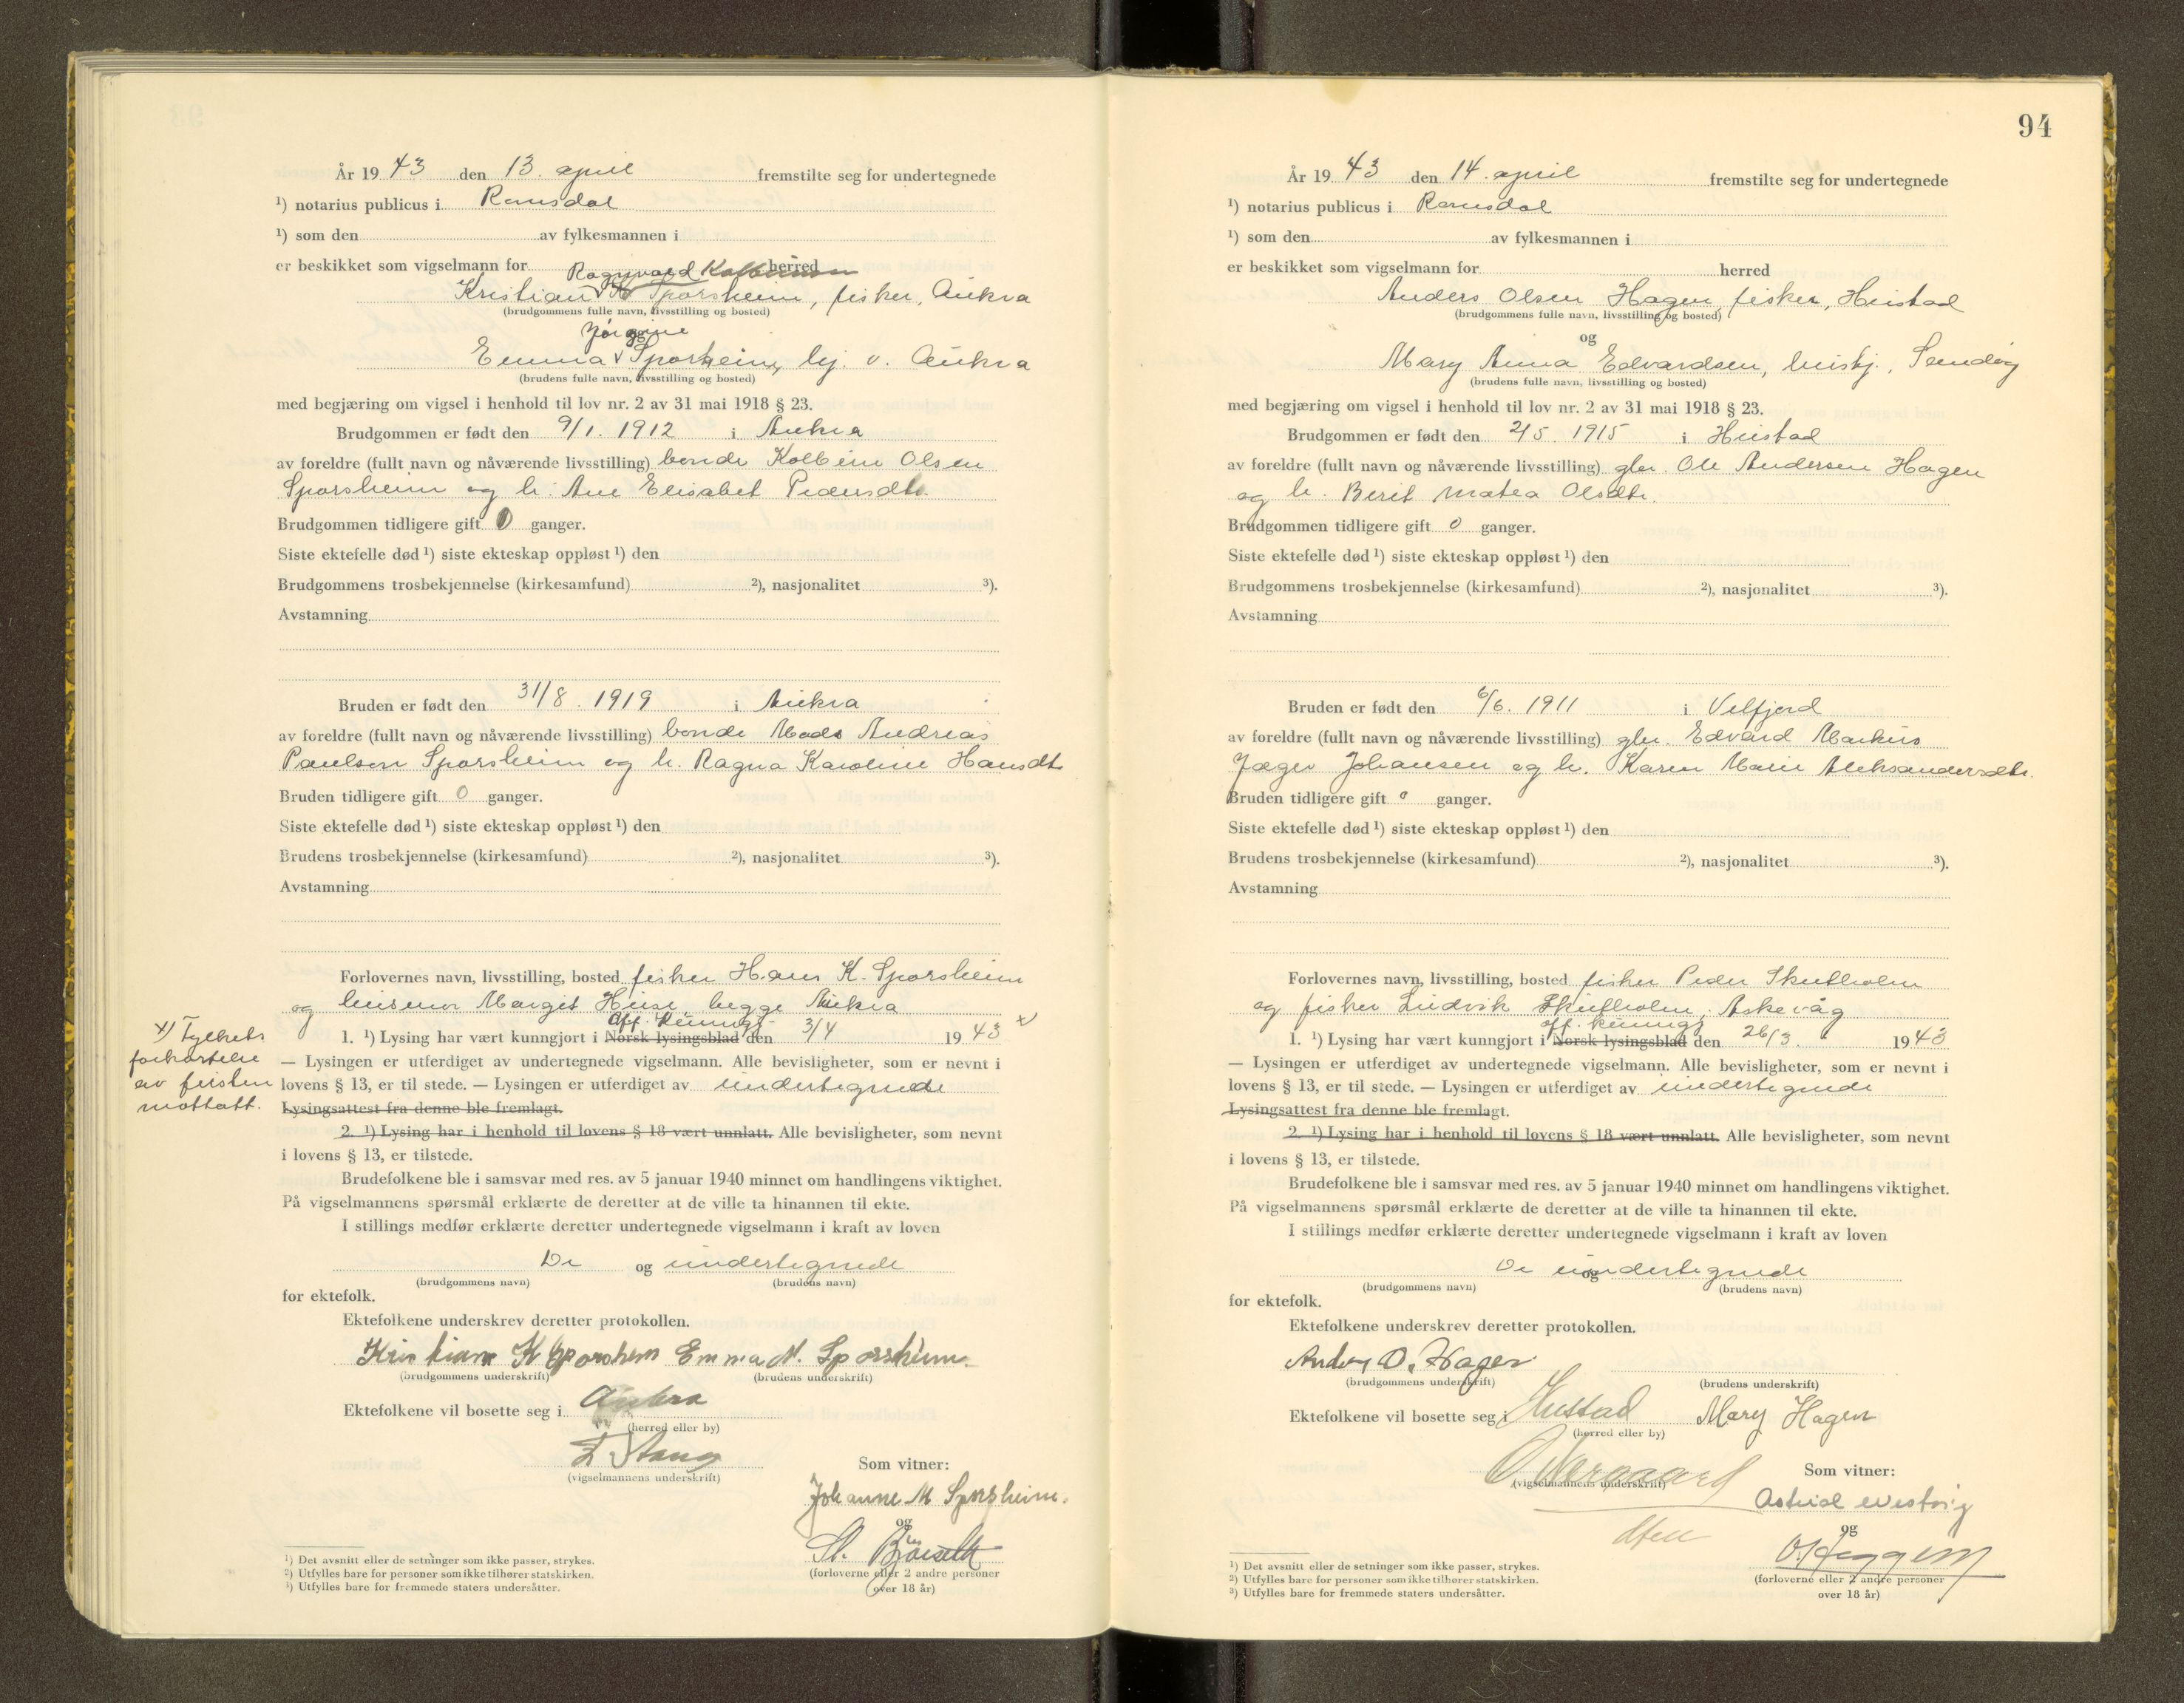 År 19 43 den 13. april fremstilte seg for undertegnede
¹) notarius publicus i Romsdal
¹) som den av fylkesmannen i
er beskikket som vigselmann for herred
Ragnvald Kolbeinson
Kristian Sporsheim, fisker, Aukra
(brudgommens fulle navn, livsstilling og bosted)
og
Jørgine
Emma Sporsheim, hj. v. Aukra
(brudens fulle navn, livsstilling og bosted)
med begjæring om vigsel i henhold til lov nr. 2 av 31 mai 1918 § 23.
Brudgommen er født den 9/1. 1912 i Aukra
av foreldre (fullt navn og nåværende livsstilling) bonde Kolbein Olsen
Sporsheim og h. Ane Elisabet Pedersdtr.
Brudgommen tidligere gift 0 ganger.
Siste ektefelle død ¹) siste ekteskap oppløst ¹) den
Brudgommens trosbekjennelse (kirkesamfund) ²), nasjonalitet ³).
Avstamning
Bruden er født den 31/8. 1919 i Aukra
av foreldre (fullt navn og nåværende livsstilling) bonde Mads Andreas
Paulsen Sporsheim og h. Ragna Karoline Hansdtr
Bruden tidligere gift 0 ganger.
Siste ektefelle død ¹) siste ekteskap oppløst ¹) den
Brudens trosbekjennelse (kirkesamfund) ²), nasjonalitet ³).
Avstamning
Forlovernes navn, livsstilling, bosted fisker Hans K. Sporsheim
og husmor Margit Huse, begge Aukra
off. kunngj.
1. ¹) Lysing har vært kunngjort i Norsk lysingsblad den 3/4 19 43 x)
x) Fylkets
forkortelse
av fristen
mottatt.
— Lysingen er utferdiget av undertegnede vigselmann. Alle bevisligheter, som er nevnt i
lovens § 13, er til stede. — Lysingen er utferdiget av undertegnede
Lysingsattest fra denne ble fremlagt.
2. ¹) Lysing har i henhold til lovens § 18 vært unnlatt. Alle bevisligheter, som nevnt
i lovens § 13, er tilstede.
Brudefolkene ble i samsvar med res. av 5 januar 1940 minnet om handlingens viktighet.
På vigselmannens spørsmål erklærte de deretter at de ville ta hinannen til ekte.
I stillings medfør erklærte deretter undertegnede vigselmann i kraft av loven
De og undertegnede
(brudgommens navn) (brudens navn)
for ektefolk.
Ektefolkene underskrev deretter protokollen.
Kristian K Sporshem Emma M. Sporsheim.
(brudgommens underskrift) (brudens underskrift)
Ektefolkene vil bosette seg i Aukra
(herred eller by)
(vigselmannens underskrift)
Som vitner:
Johanne M Sporsheim.
og
(forloverne eller 2 andre personer
over 18 år)
¹) Det avsnitt eller de setninger som ikke passer, strykes.
²) Utfylles bare for personer som ikke tilhører statskirken.
³) Utfylles bare for fremmede staters undersåtter.
94
År 19 43 den 14. april fremstilte seg for undertegnede
¹) notarius publicus i Romsdal
¹) som den av fylkesmannen i
er beskikket som vigselmann for herred
Anders Olsen Hagen, fisker, Hustad
(brudgommens fulle navn, livsstilling og bosted)
og
Mary Anna Edvardsen, hushj.,
(brudens fulle navn, livsstilling og bosted)
med begjæring om vigsel i henhold til lov nr. 2 av 31 mai 1918 § 23.
Brudgommen er født den 2/5. 1915 i Hustad
av foreldre (fullt navn og nåværende livsstilling) gbr. Ole Andersen Hagen
og h. Berit Matea Olsdtr.
Brudgommen tidligere gift 0 ganger.
Siste ektefelle død ¹) siste ekteskap oppløst ¹) den
Brudgommens trosbekjennelse (kirkesamfund) ²), nasjonalitet ³).
Avstamning
Bruden er født den 6/6. 1911 i Velfjord
av foreldre (fullt navn og nåværende livsstilling) gbr. Edvard Markus
Jæger Johansen og h. Karen Marie Aleksandersdtr.
Bruden tidligere gift 0 ganger.
Siste ektefelle død ¹) siste ekteskap oppløst ¹) den
Brudens trosbekjennelse (kirkesamfund) ²), nasjonalitet ³).
Avstamning
Forlovernes navn, livsstilling, bosted fisker Peder Skutholm
og fisker Ludvik Skutholm, Askevåg
off. kunngj.
1. ¹) Lysing har vært kunngjort i Norsk lysingsblad den 26/3. 19 43
— Lysingen er utferdiget av undertegnede vigselmann. Alle bevisligheter, som er nevnt i
lovens § 13, er til stede. — Lysingen er utferdiget av undertegnede
Lysingsattest fra denne ble fremlagt.
2. ¹) Lysing har i henhold til lovens § 18 vært unnlatt. Alle bevisligheter, som nevnt
i lovens § 13, er tilstede.
Brudefolkene ble i samsvar med res. av 5 januar 1940 minnet om handlingens viktighet.
På vigselmannens spørsmål erklærte de deretter at de ville ta hinannen til ekte.
I stillings medfør erklærte deretter undertegnede vigselmann i kraft av loven
De og undertegnede
(brudgommens navn) (brudens navn)
for ektefolk.
Ektefolkene underskrev deretter protokollen.
Anders O. Hagen
(brudgommens underskrift) (brudens underskrift)
Ektefolkene vil bosette seg i Hustad Mary Hagen
(herred eller by)
(vigselmannens underskrift)
Som vitner:
Astrid
og
(forloverne eller 2 andre personer
over 18 år)
¹) Det avsnitt eller de setninger som ikke passer, strykes.
²) Utfylles bare for personer som ikke tilhører statskirken.
³) Utfylles bare for fremmede staters undersåtter.